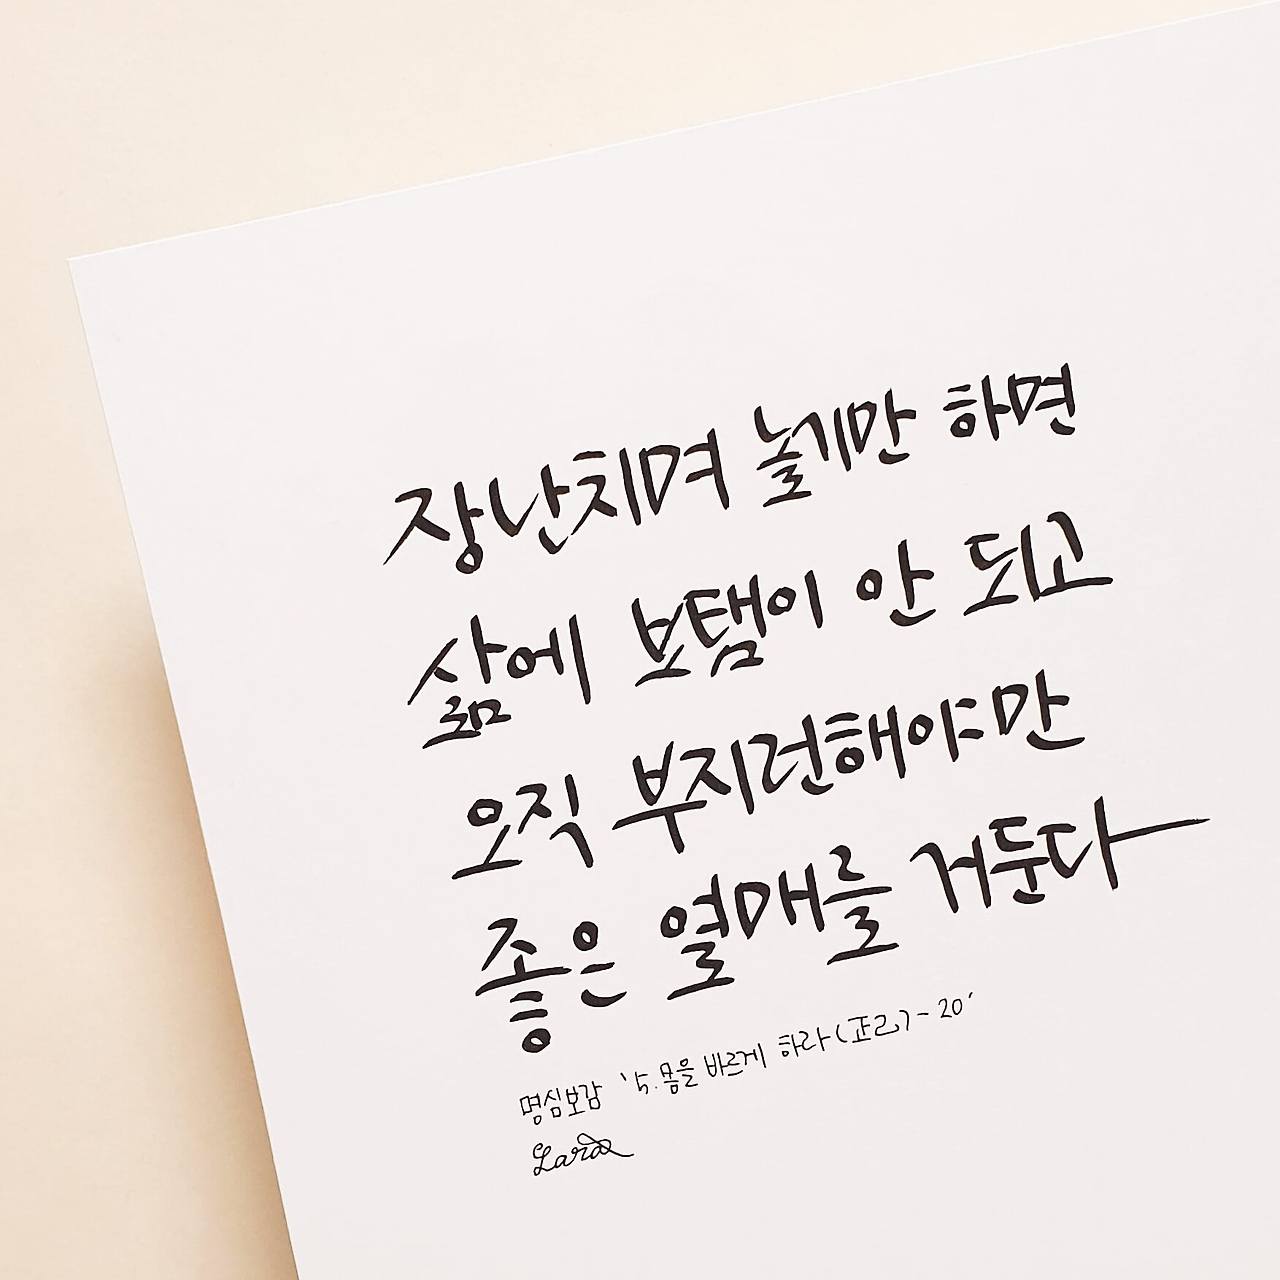 장난치며 놀기만 하면
삶에 보탬이 안 되고
오직 부지런해야만
좋은 열매를 거둔다
명심보감 '5. 몸을 바르게 하라(正己)-20'
Lara